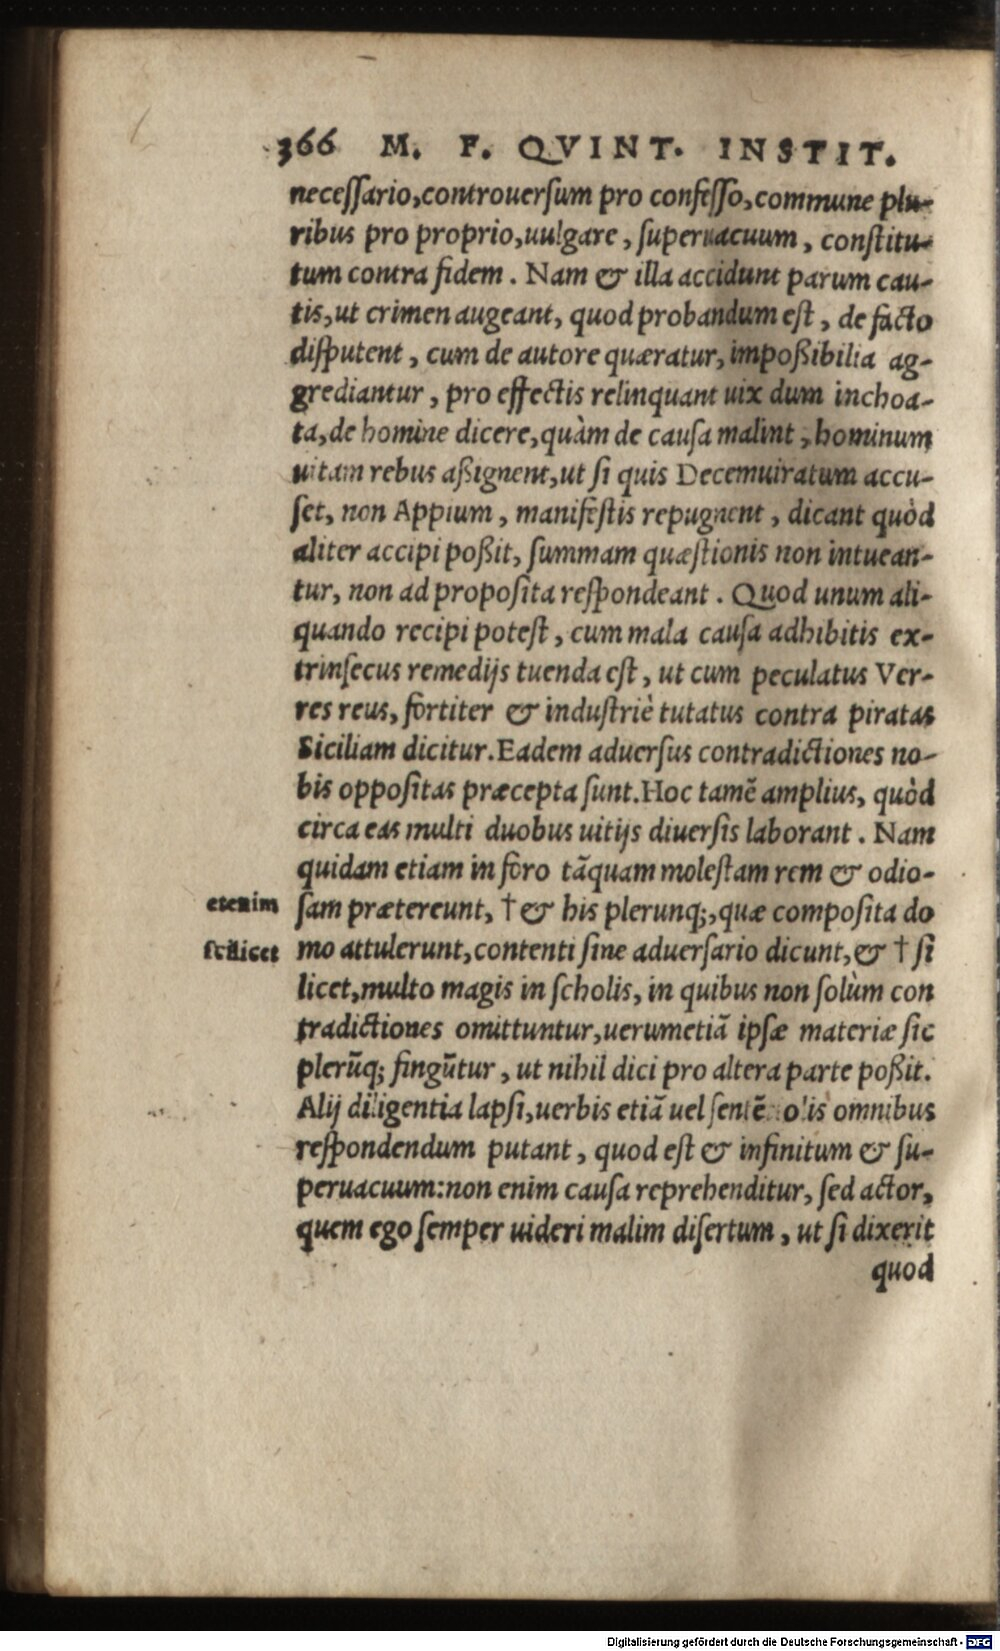 366 M. F. QVINT. INSTIT.
necessario, controuersum pro confesso, commune plu-
ribus pro proprio, uulgare, superuacuum, constitu-
tum contra fidem. Nam & illa accidunt parum cau-
tis, ut crimen augeant, quod probandum est, de facto
disputent, cum de autore quæratur, impoßibilia ag-
grediantur, pro effectis relinquant uix dum inchoa-
ta, de homine dicere, quàm de causa malint, hominum
uitam rebus aßignent, ut si quis Decemuiratum accu-
set, non Appium, manifestis repugnent, dicant quòd
aliter accipi poßit, summam quæstionis non intuean-
tur, non ad proposita respondeant. Quod unum ali-
quando recipi potest, cum mala causa adhibitis ex-
trinsecus remedijs tuenda est, ut cum peculatus Ver-
res reus, fortiter & industriè tutatus contra piratas
Siciliam dicitur. Eadem aduersus contradictiones no-
bis oppositas præcepta sunt. Hoc tamē amplius, quòd
circa eas multi duobus uitijs diuersis laborant. Nam
quidam etiam in foro tāquam molestam rem & odio-
etenim sam prætereunt, † & his plerunq;, quæ composita do
scilicet mo attulerunt, contenti sine aduersario dicunt, & † si
licet, multo magis in scholis, in quibus non solùm con
tradictiones omittuntur, uerumetiā ipsæ materiæ sic
plerūq; fingūtur, ut nihil dici pro altera parte poßit.
Alij diligentia lapsi, uerbis etiā uel omnibus
respondendum putant, quod est & infinitum & su-
peruacuum: non enim causa reprehenditur, sed actor,
quem ego semper uideri malim disertum, ut si dixerit
quod
Digitalisierung gefördert durch die Deutsche Forschungsgemeinschaft - DFG